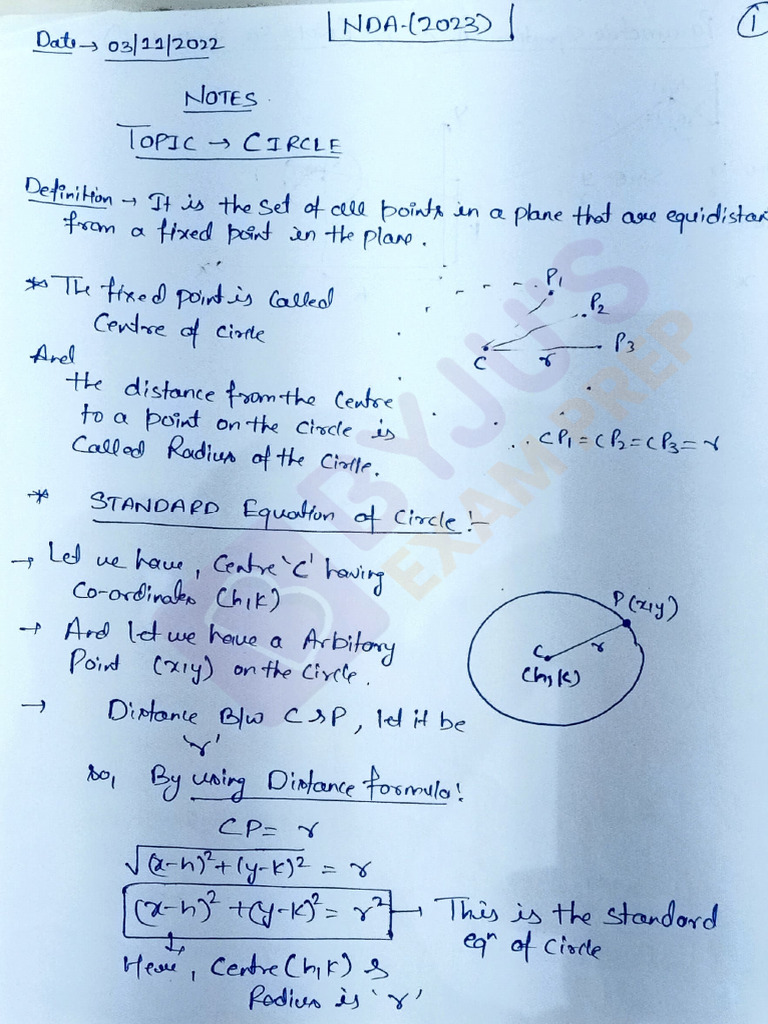 NDA-(2023)
1
Date → 03/11/2022
NOTES
TOPIC → CIRCLE
Definition → It is the set of all points in a plane that are equidistan
from a fixed point in the plane.
* The fixed point is called
Centre of circle
And
the distance from the centre
to a point on the circle is
called Radius of the circle.
P1
P2
P3
C
r
∴ CP1 = CP2 = CP3 = r
* STANDARD Equation of Circle :-
→ Let we have, Centre 'C' having
Co-ordinates (h,k)
→ And let we have a Arbitory
Point (x,y) on the circle.
P(x,y)
r
C
(h,k)
→ Distance B/w C & P, let it be
'r'
so, By using Distance formula:
CP = r
√(x-h)²+(y-k)² = r
(x-h)² + (y-k)² = r² → This is the standard
eqn of circle
Here, Centre (h,k) &
Radius is 'r'
BYJU'S
EXAM PREP